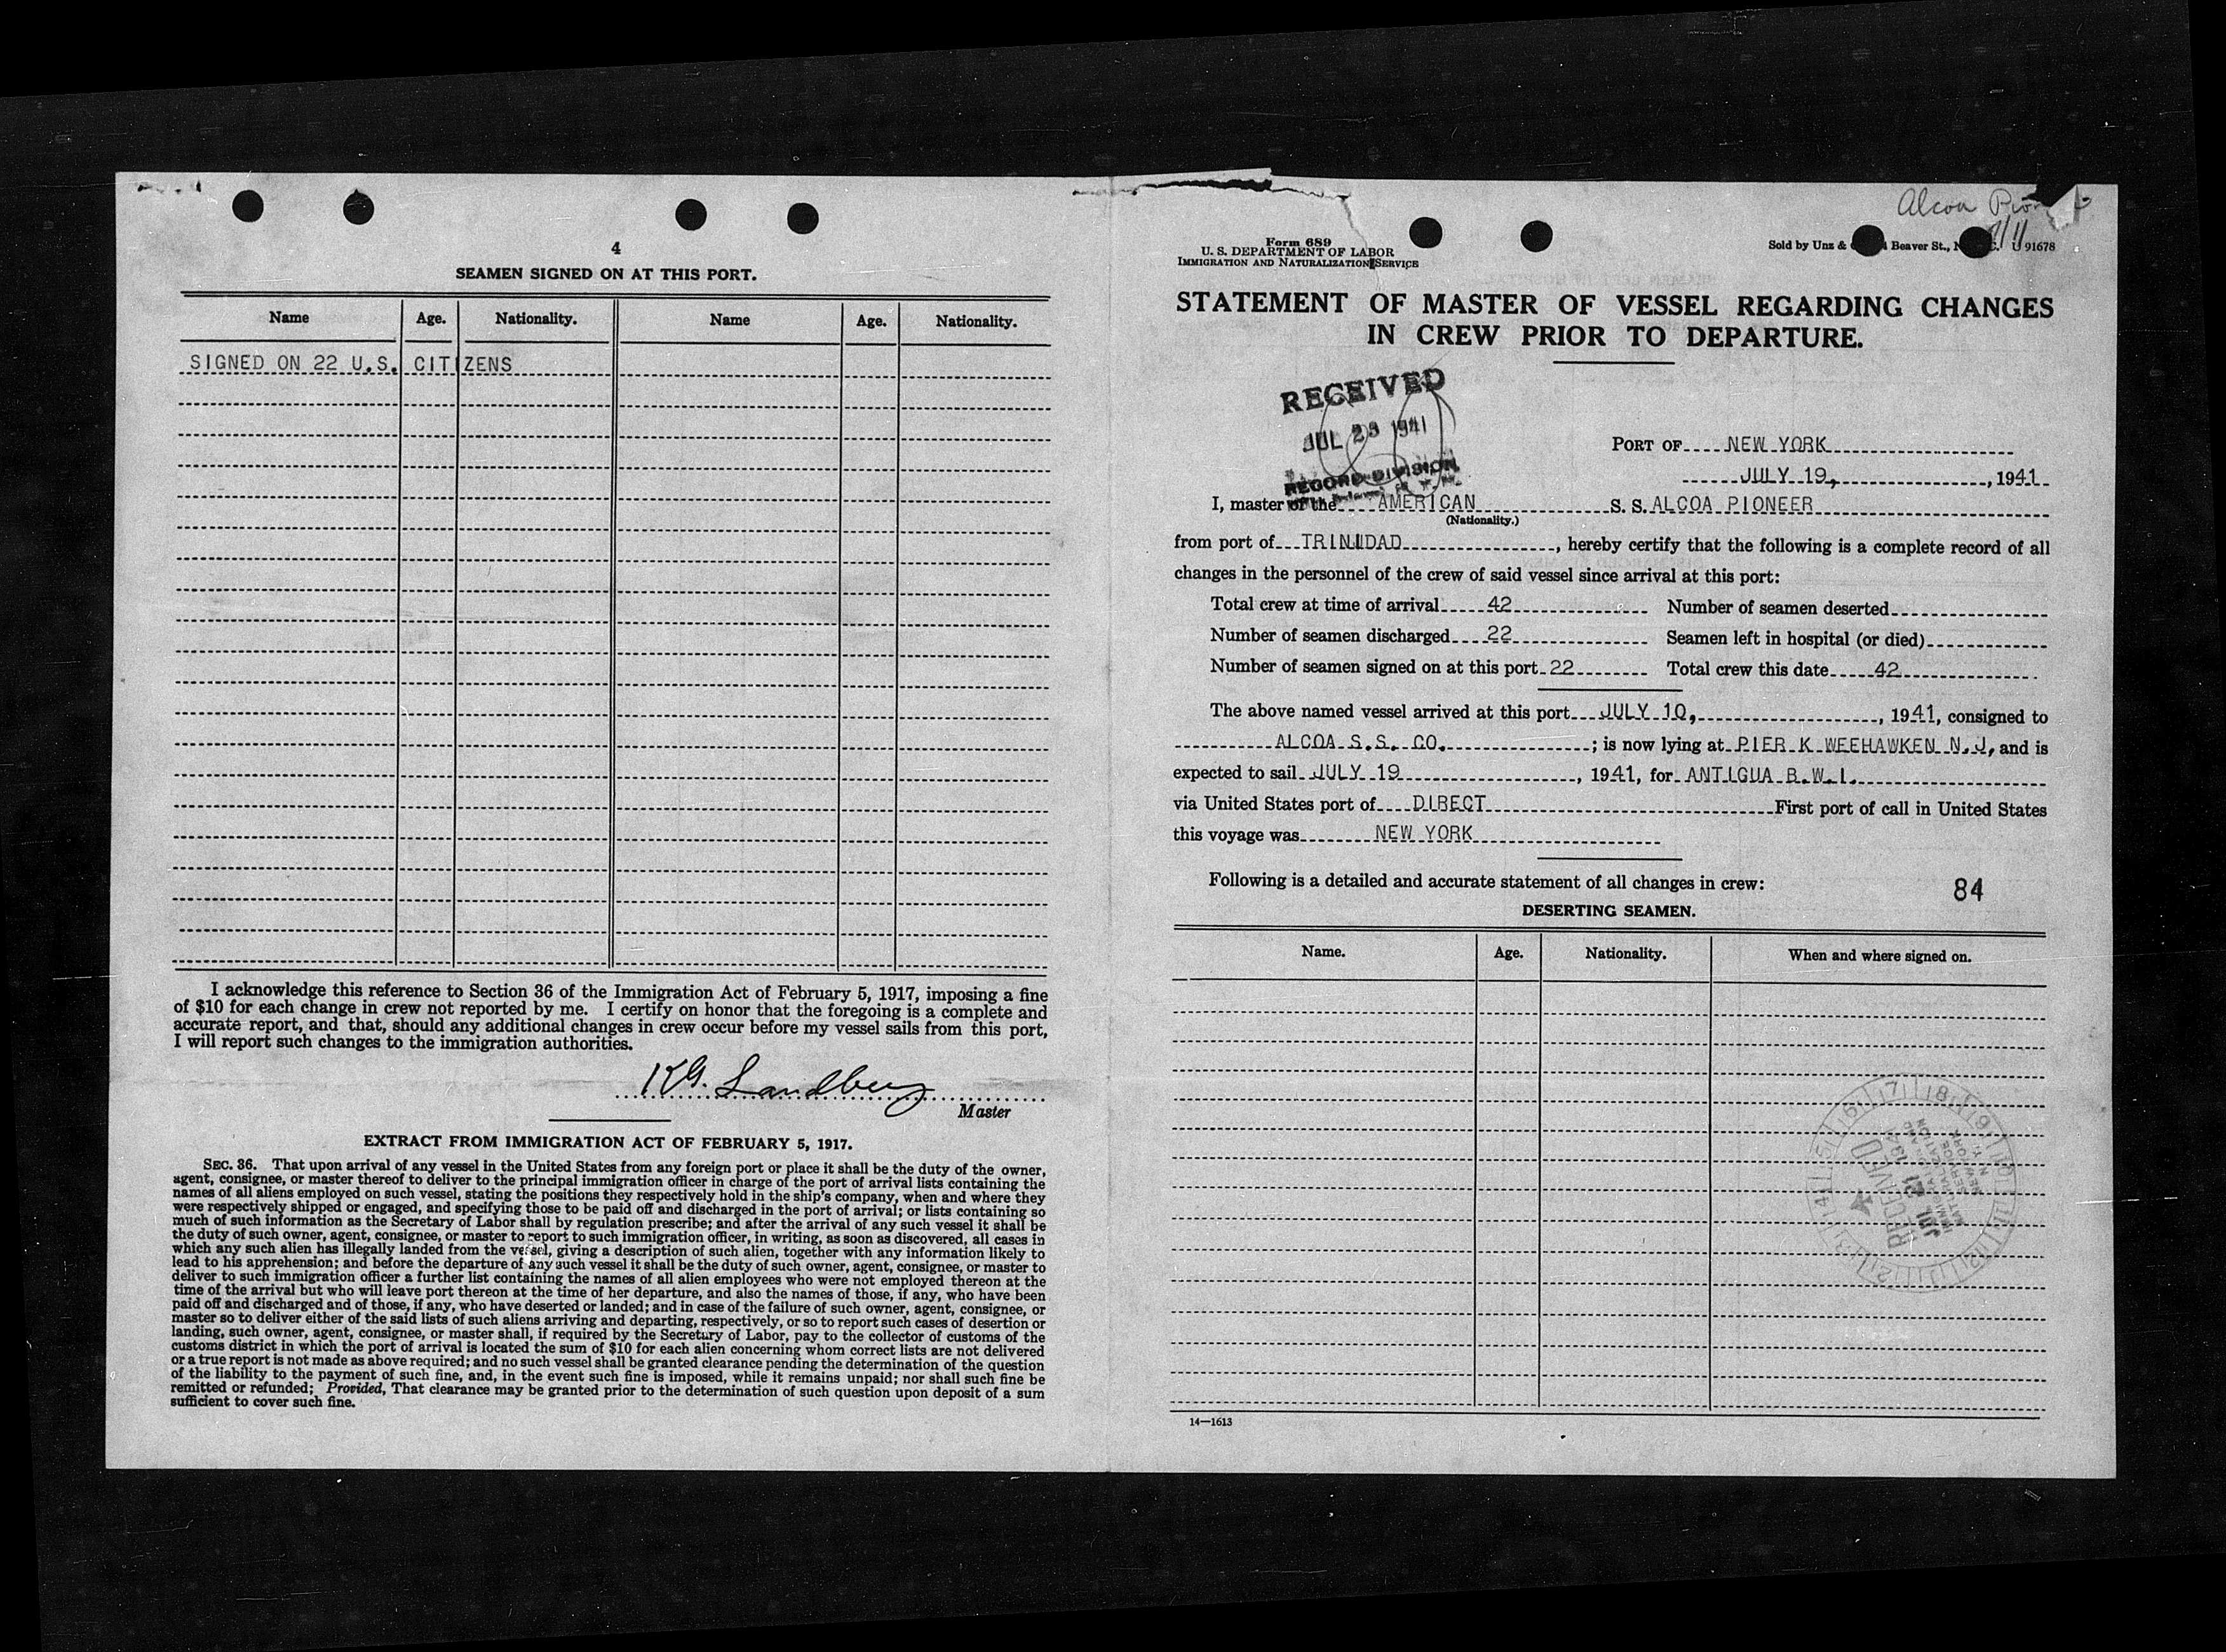 4
SEAMEN SIGNED ON AT THIS PORT.
Name Age. Nationality. Name Age. Nationality.
SIGNED ON 22 U.S. CITIZENS
I acknowledge this reference to Section 36 of the Immigration Act of February 5, 1917, imposing a fine
of $10 for each change in crew not reported by me. I certify on honor that the foregoing is a complete and
accurate report, and that, should any additional changes in crew occur before my vessel sails from this port,
I will report such changes to the immigration authorities.
K.G. Sandberg
Master
EXTRACT FROM IMMIGRATION ACT OF FEBRUARY 5, 1917.
SEC. 36. That upon arrival of any vessel in the United States from any foreign port or place it shall be the duty of the owner,
agent, consignee, or master thereof to deliver to the principal immigration officer in charge of the port of arrival lists containing the
names of all aliens employed on such vessel, stating the positions they respectively hold in the ship's company, when and where they
were respectively shipped or engaged, and specifying those to be paid off and discharged in the port of arrival; or lists containing so
much of such information as the Secretary of Labor shall by regulation prescribe; and after the arrival of any such vessel it shall be
the duty of such owner, agent, consignee, or master to report to such immigration officer, in writing, as soon as discovered, all cases in
which any such alien has illegally landed from the vessel, giving a description of such alien, together with any information likely to
lead to his apprehension; and before the departure of any such vessel it shall be the duty of such owner, agent, consignee, or master to
deliver to such immigration officer a further list containing the names of all alien employees who were not employed thereon at the
time of the arrival but who will leave port thereon at the time of her departure, and also the names of those, if any, who have been
paid off and discharged and of those, if any, who have deserted or landed; and in case of the failure of such owner, agent, consignee, or
master so to deliver either of the said lists of such aliens arriving and departing, respectively, or so to report such cases of desertion or
landing, such owner, agent, consignee, or master shall, if required by the Secretary of Labor, pay to the collector of customs of the
customs district in which the port of arrival is located the sum of $10 for each alien concerning whom correct lists are not delivered
or a true report is not made as above required; and no such vessel shall be granted clearance pending the determination of the question
of the liability to the payment of such fine, and, in the event such fine is imposed, while it remains unpaid; nor shall such fine be
remitted or refunded; Provided, That clearance may be granted prior to the determination of such question upon deposit of a sum
sufficient to cover such fine.
Alcoa
Form 689
U. S. DEPARTMENT OF LABOR
IMMIGRATION AND NATURALIZATION SERVICE
Sold by Unz & Beaver St., U 91678
STATEMENT OF MASTER OF VESSEL REGARDING CHANGES
IN CREW PRIOR TO DEPARTURE.
RECEIVED
JUL 23 1941
RECORD DIVISION
PORT OF NEW YORK
JULY 19, , 1941
I, master of the AMERICAN S. S. ALCOA PIONEER
(Nationality.)
from port of TRINIDAD , hereby certify that the following is a complete record of all
changes in the personnel of the crew of said vessel since arrival at this port:
Total crew at time of arrival 42 Number of seamen deserted
Number of seamen discharged 22 Seamen left in hospital (or died)
Number of seamen signed on at this port 22 Total crew this date 42
The above named vessel arrived at this port JULY 10, , 1941, consigned to
ALCOA S.S. CO. ; is now lying at PIER K WEEHAWKEN N.J, and is
expected to sail JULY 19 , 1941, for ANTIGUA B.W.I.
via United States port of DIRECT First port of call in United States
this voyage was NEW YORK
Following is a detailed and accurate statement of all changes in crew:
84
DESERTING SEAMEN.
Name. Age. Nationality. When and where signed on.
RECEIVED
JUL 21
14—1613